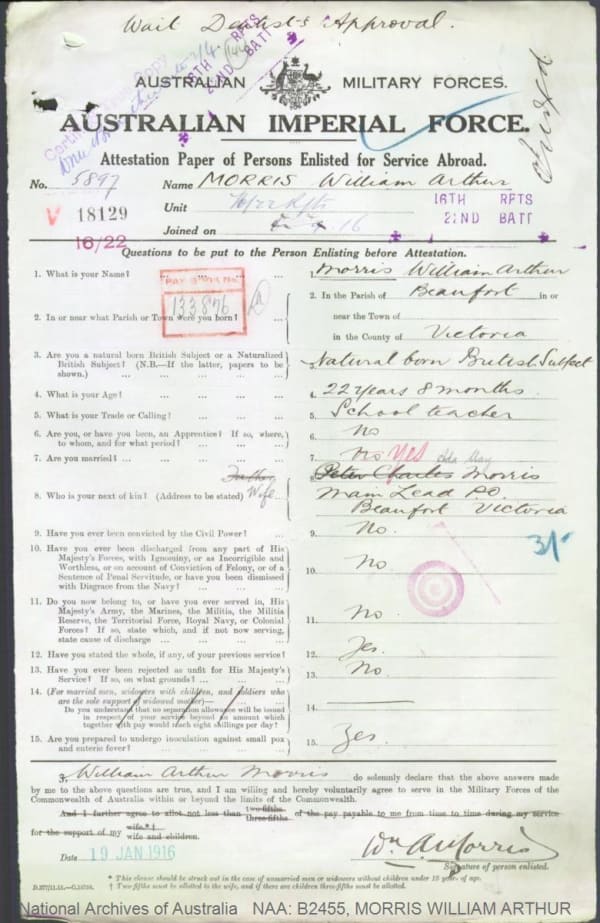 Wait Dentist's Approval.
16TH RFTS
22ND BATT
AUSTRALIAN MILITARY FORCES.
AUSTRALIAN IMPERIAL FORCE.
Attestation Paper of Persons Enlisted for Service Abroad.
No. 5897 Name MORRIS William Arthur
V 18129 Unit 16/22 Rfts 16TH RFTS
22ND BATT
Joined on 16
16/22
Questions to be put to the Person Enlisting before Attestation.
1. What is your Name? ... Morris William Arthur
133876
2. In or near what Parish or Town were you born? ... 2. In the Parish of Beaufort in or
near the Town of
in the County of Victoria
3. Are you a natural born British Subject or a Naturalized British Subject? (N.B.—If the latter, papers to be shown.) ... 3. Natural born British Subject
4. What is your Age? ... 4. 22 years 8 months
5. What is your Trade or Calling? ... 5. School teacher
6. Are you, or have you been, an Apprentice? If so, where, to whom, and for what period? ... 6. No
7. Are you married? ... 7. No Yes
Father Wife
8. Who is your next of kin? (Address to be stated) 8. Peter Charles Morris
Ada May
Main Lead P.O.
Beaufort Victoria
9. Have you ever been convicted by the Civil Power? ... 9. No.
3/-
10. Have you ever been discharged from any part of His Majesty's Forces, with Ignominy, or as Incorrigible and Worthless, or on account of Conviction of Felony, or of a Sentence of Penal Servitude, or have you been dismissed with Disgrace from the Navy? ... 10. No
11. Do you now belong to, or have you ever served in, His Majesty's Army, the Marines, the Militia, the Militia Reserve, the Territorial Force, Royal Navy, or Colonial Forces? If so, state which, and if not now serving, state cause of discharge ... 11. No
12. Have you stated the whole, if any, of your previous service? 12. Yes.
13. Have you ever been rejected as unfit for His Majesty's Service? If so, on what grounds? ... 13. No.
14. (For married men, widowers with children, and soldiers who are the sole support of widowed mother)—
Do you understand that no separation allowance will be issued in respect of your service beyond an amount which together with pay would reach eight shillings per day? 14.
15. Are you prepared to undergo inoculation against small pox and enteric fever? ... 15. Yes.
I, William Arthur Morris do solemnly declare that the above answers made
by me to the above questions are true, and I am willing and hereby voluntarily agree to serve in the Military Forces of the
Commonwealth of Australia within or beyond the limits of the Commonwealth.
And I further agree to allot not less than two-fifths three-fifths of the pay payable to me from time to time during my service
for the support of my wife.*† wife and children.
Date 19 JAN 1916 Wm A Morris
Signature of person enlisted.
* This clause should be struck out in the case of unmarried men or widowers without children under 18 years of age.
† Two-fifths must be allotted to the wife, and if there are children three-fifths must be allotted.
National Archives of Australia NAA: B2455, MORRIS WILLIAM ARTHUR